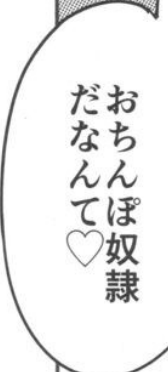 おちんぽ奴隷
だなんて♡